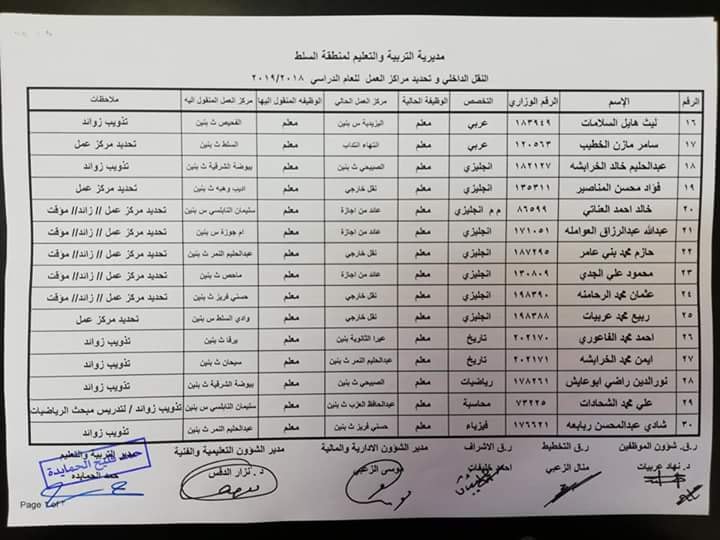 مديرية التربية والتعليم لمنطقة السلط
النقل الداخلي و تحديد مراكز العمل للعام الدراسي ٢٠١٩/٢٠١٨
الرقم الإسم الرقم الوزاري التخصص الوظيفة الحالية مركز العمل الحالي الوظيفه المنقول اليها مركز العمل المنقول اليه ملاحظات
١٦ ليث هايل السلامات ١٨٣٩٤٩ عربي معلم اليزيدية س بنين معلم الفحيص ث بنين تذويب زوائد
١٧ سامر مازن الخطيب ١٢٠٥٦٣ عربي معلم انتهاء انتداب معلم السلط ث بنين تحديد مركز عمل
١٨ عبدالحليم خالد الخرابشه ١٨٢١٢٧ انجليزي معلم الصبيحي ث بنين معلم بيوضة الشرقية ث بنين تذويب زوائد
١٩ فؤاد محسن المناصير ١٣٥٣١١ انجليزي معلم نقل خارجي معلم اديب وهبه ث بنين تحديد مركز عمل
٢٠ خالد احمد العناتي ٨٦٥٩٩ م م انجليزي معلم عائد من اجازة معلم سليمان النابلسي س بنين تحديد مركز عمل // زائد// مؤقت
٢١ عبدالله عبدالرزاق العوامله ١٧١٠٥١ انجليزي معلم عائد من اجازة معلم ام جوزة س بنين تحديد مركز عمل // زائد// مؤقت
٢٢ حازم محمد بني عامر ١٨٧٢٩٥ انجليزي معلم نقل خارجي معلم عبدالحليم النمر ث بنين تحديد مركز عمل // زائد// مؤقت
٢٣ محمود علي الجدي ١٣٠٨٠٩ انجليزي معلم عائد من اجازة معلم ماحص ث بنين تحديد مركز عمل // زائد// مؤقت
٢٤ عثمان محمد الرحامنه ١٩٨٣٩٠ انجليزي معلم نقل خارجي معلم حسني فريز ث بنين تحديد مركز عمل // زائد// مؤقت
٢٥ ربيع محمد عربيات ١٩٨٣٨٨ انجليزي معلم نقل خارجي معلم وادي السلط س بنين تحديد مركز عمل
٢٦ احمد محمد الفاعوري ٢٠٢١٧٠ تاريخ معلم عيرا الثانوية بنين معلم يرقا ث بنين تذويب زوائد
٢٧ ايمن محمد الخرابشه ٢٠٢١٧١ تاريخ معلم عبدالحليم النمر ث بنين معلم سيحان ث بنين تذويب زوائد
٢٨ نورالدين راضي ابوعايش ١٧٨٢٦١ رياضيات معلم الصبيحي ث بنين معلم بيوضة الشرقية ث بنين تذويب زوائد
٢٩ علي محمد الشحادات ٧٣٢٢٥ محاسبة معلم عبدالحافظ العزب ث بنين معلم سليمان النابلسي س بنين تذويب زوائد / لتدريس مبحث الرياضيات
٣٠ شادي عبدالمحسن ربابعه ١٧٦٦٢١ فيزياء معلم حسني فريز ث بنين معلم عبدالحليم النمر ث بنين تذويب زوائد
ر.ق. شؤون الموظفين ر.ق التخطيط ر.ق الاشراف مدير الشؤون الادارية والمالية مدير الشؤون التعليمية والفنية مدير التربية والتعليم
د. نهاد عربيات منال الزعبي احمد خليفات موسى الزعبي د. نزار الدقس حمد الحمايده
الحمايدة
Page